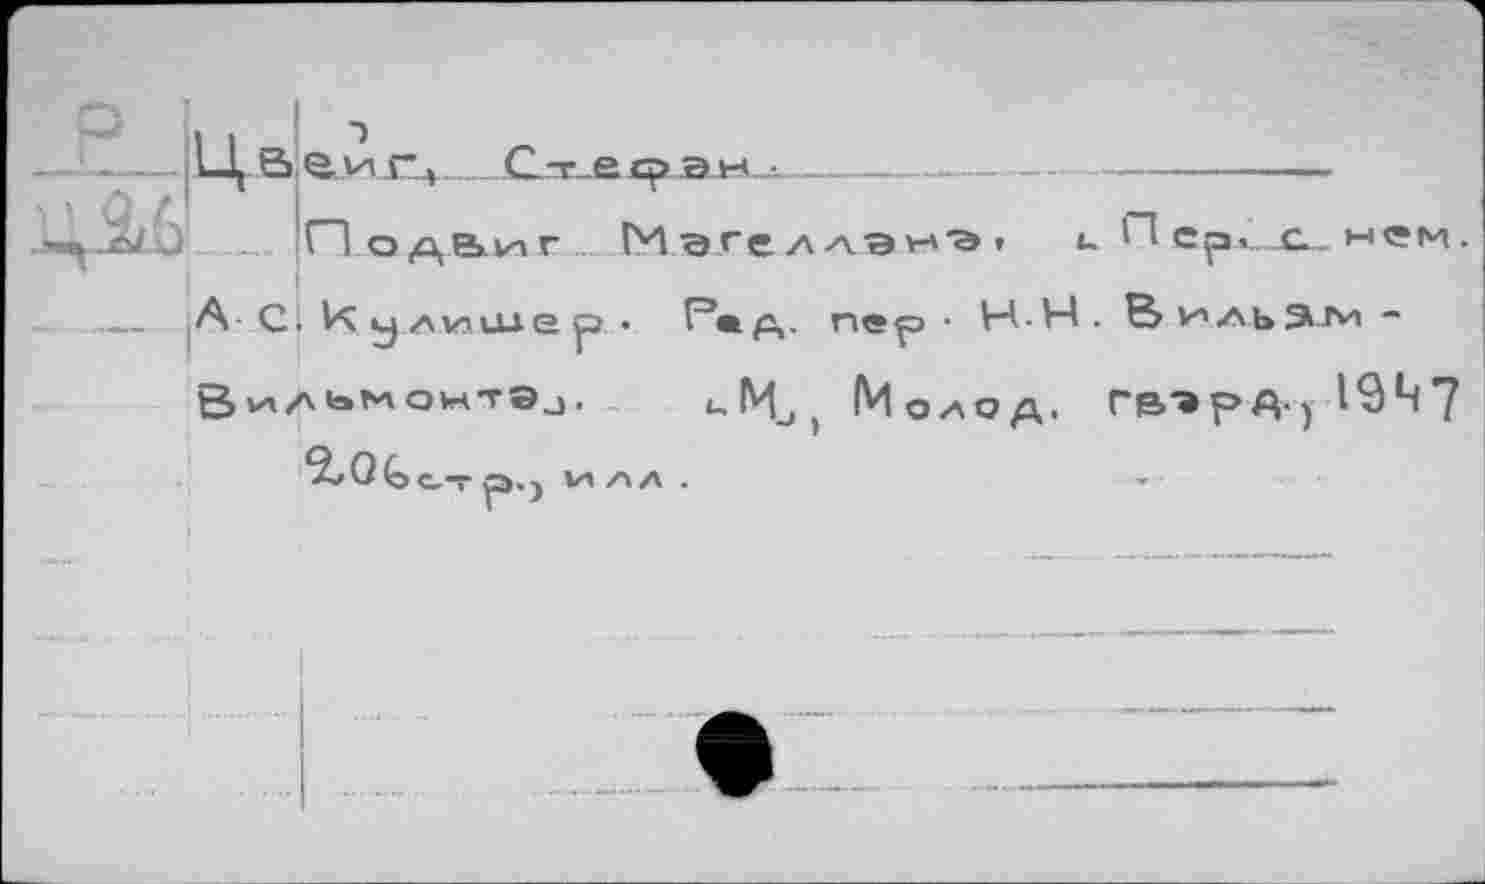 Р
Цвейг, Стефан.
Ц26
Подвиг Магеллана. [Пер. с нем.
А. С. Кулишер. Ред. пер. Н.Н. Вильям-
Вильмонта]. [М], Молод. гвард., 1947
206 стр., илл.